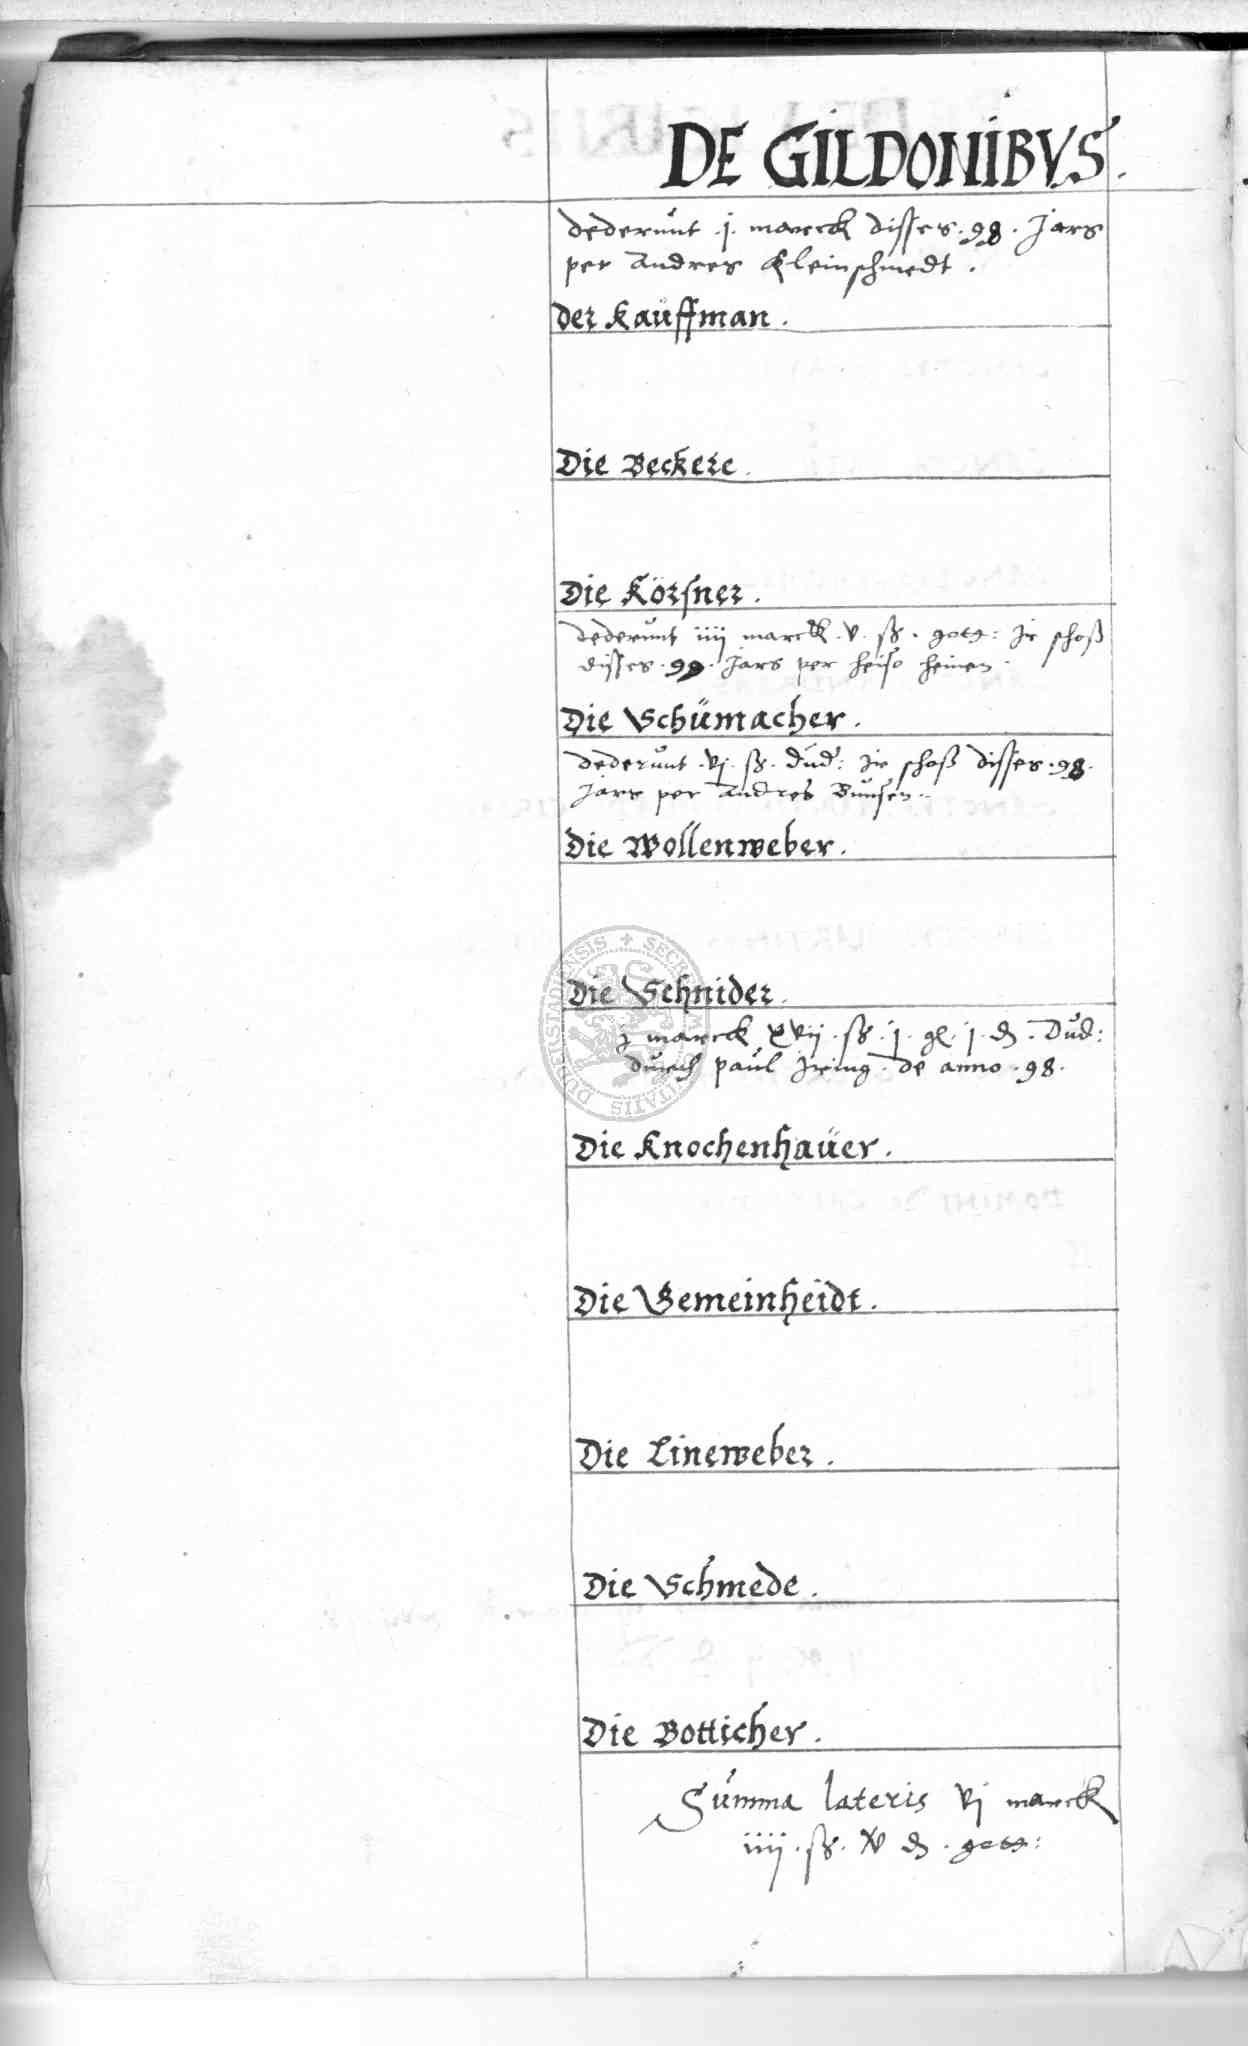 DE GILDONIBVS.
dederunt .j. marck disses .98. Jars
per Andres Kleinschmedt.
der Kauffman.
Die Beckere.
Die Körsner.
dederunt iiij marck .v. ß. gott: Jr schoß
disses .99. Jars per heiso heinen.
Die Schümacher.
dederunt .vj. ß. dud: Jr schoß disses .98.
Jars per Andres Bunsen.
Die Wollenweber.
Die Schnider.
j marck xvij .ß. j. gl. j. d. Dud:
durch paul Jring. de anno .98.
Die Knochenhaüer.
Die Gemeinheidt.
Die Lineweber.
Die Schmede.
Die Botticher.
Summa lateris vj marck
iiij .ß. xv d. gott: